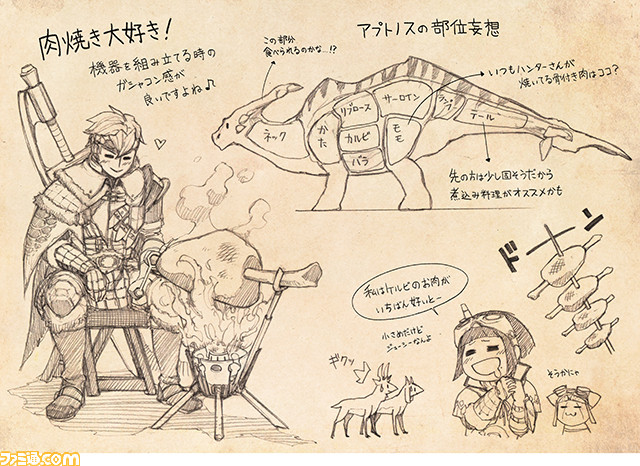 肉焼き大好き!
機器を組み立てる時の
ガシャコン感が
良いですよね♪
アプトノスの部位妄想
この部分
食べられるのかな…!?
いつもハンターさんが
焼いてる骨付き肉はココ?
ネック
かた
リブロース
サーロイン
カルビ
バラ
モモ
ランプ
テール
先の方は少し固そうだから
煮込み料理がオススメかも
ドーン
私はケルビのお肉が
いちばん好いとー
小さめだけど
ジューシーなんよ
ギクッ
そうかにゃ
ファミ通.com